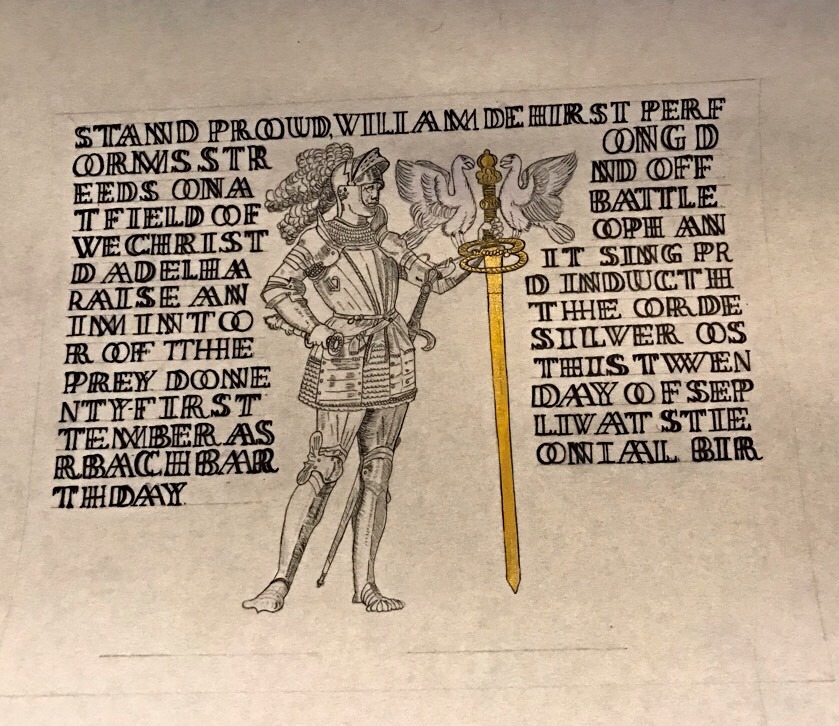 STAND PROUD, WILIAM DE HIRST PERF
ORMS STR ONG D
EEDS ON A ND OFF
T FIELD OF BATTLE
WE CHRIST OPH AN
D ADELHA IT SING PR
RAISE AN D INDUCT H
IM INTO THE ORDE
R OF THE SILVER OS
PREY DONE THIS TWEN
NTY-FIRST DAY OF SEP
TEMBER AS LIVAT STIE
RBACH BAR ONIAL BIR
THDAY